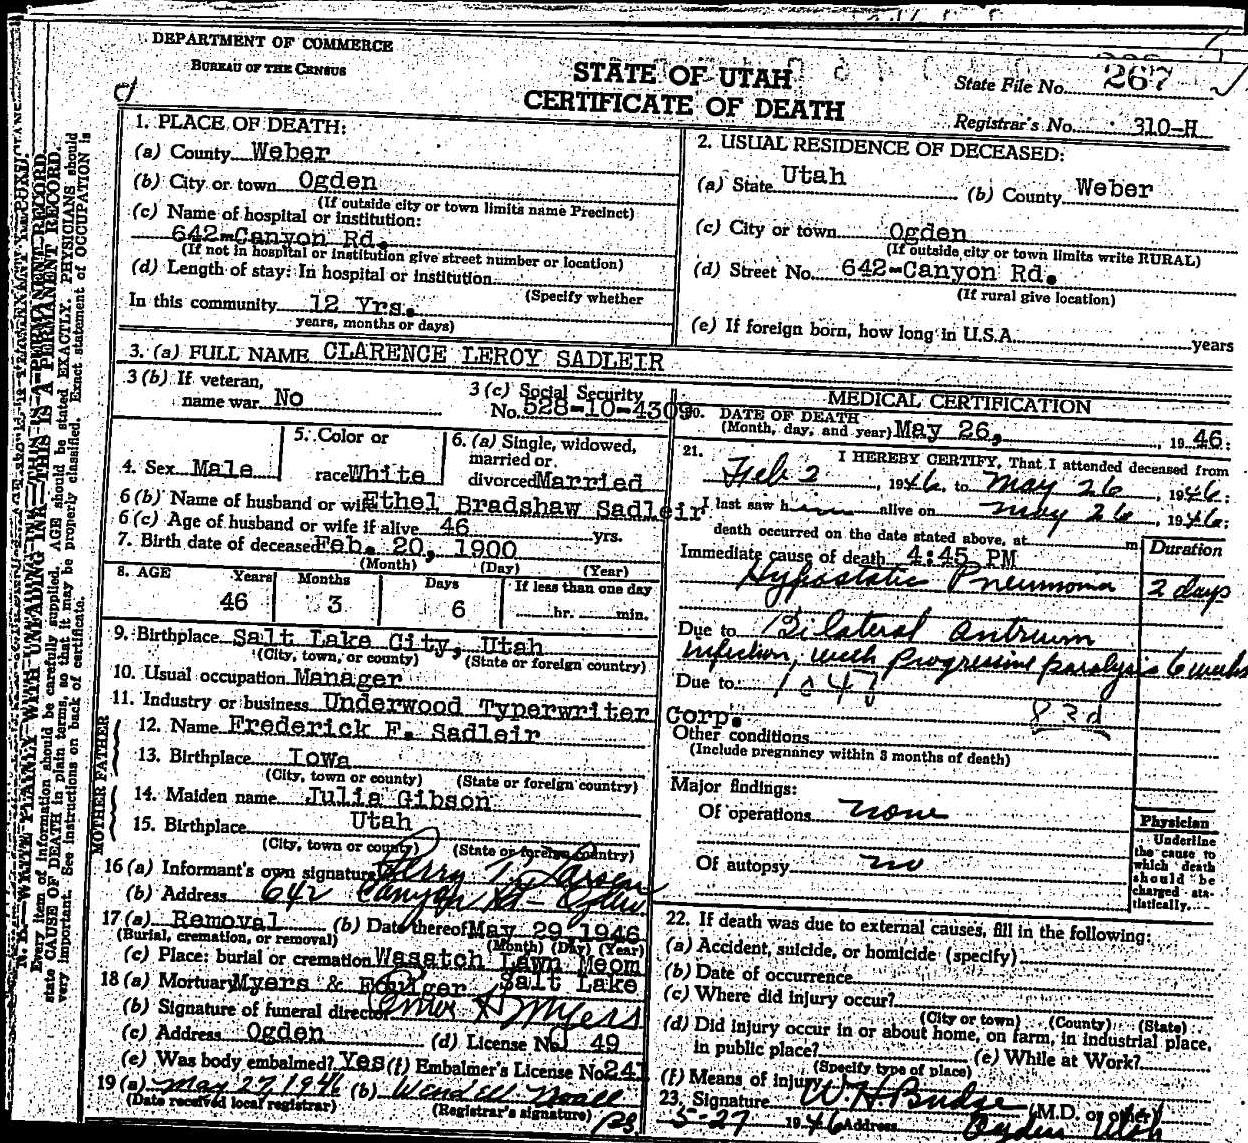 DEPARTMENT OF COMMERCE
BUREAU OF THE CENSUS
STATE OF UTAH
CERTIFICATE OF DEATH
State File No. 267
Registrar's No. 310-H
1. PLACE OF DEATH:
(a) County Weber
(b) City or town Ogden
(If outside city or town limits name Precinct)
(c) Name of hospital or institution:
642-Canyon Rd.
(If not in hospital or institution give street number or location)
(d) Length of stay: In hospital or institution
(Specify whether
In this community 12 Yrs.
years, months or days)
2. USUAL RESIDENCE OF DECEASED:
(a) State Utah (b) County Weber
(c) City or town Ogden
(If outside city or town limits write RURAL)
(d) Street No. 642-Canyon Rd.
(If rural give location)
(e) If foreign born, how long in U.S.A. years
3. (a) FULL NAME CLARENCE LEROY SADLEIR
3 (b) If veteran,
name war No
3 (c) Social Security
No. 528-10-4309
4. Sex Male
5. Color or
race White
6. (a) Single, widowed,
married or
divorced Married
6 (b) Name of husband or wife Ethel Bradshaw Sadleir
6 (c) Age of husband or wife if alive 46 yrs.
7. Birth date of deceased Feb. 20, 1900
(Month) (Day) (Year)
8. AGE Years Months Days If less than one day
46 3 6 hr. min.
9. Birthplace Salt Lake City, Utah
(City, town, or county) (State or foreign country)
10. Usual occupation Manager
11. Industry or business Underwood Typerwriter Corp.
12. Name Frederick F. Sadleir
13. Birthplace Iowa
(City, town or county) (State or foreign country)
14. Maiden name Julia Gibson
15. Birthplace Utah
(City, town or county) (State or foreign country)
FATHER
MOTHER
16 (a) Informant's own signature Perry T. Larsen
(b) Address 642 Canyon Rd - Ogden
17 (a) Removal (b) Date thereof May 29 1946
(Burial, cremation, or removal) (Month) (Day) (Year)
(c) Place: burial or cremation Wasatch Lawn Meom
Salt Lake
18 (a) Mortuary Myers & Foulger
(b) Signature of funeral director H Myers
(c) Address Ogden (d) License No 49
(e) Was body embalmed? Yes (f) Embalmer's License No. 241
19 (a) May 27, 1946 (b) Wendell Noall
(Date received local registrar) (Registrar's signature)
MEDICAL CERTIFICATION
20. DATE OF DEATH
(Month, day, and year) May 26, 1946:
21. I HEREBY CERTIFY, That I attended deceased from
Feb 2, 1946, to May 26, 1946:
I last saw him alive on May 26, 1946:
death occurred on the date stated above, at m
Immediate cause of death 4:45 PM
Duration
Hypostatic Pneumonia 2 days
Due to Bilateral Antrum
infection, with progressive paralysis 6 weeks
Due to
83d
Other conditions
(Include pregnancy within 3 months of death)
Major findings:
Of operations none
Of autopsy no
Physician
Underline
the cause to
which death
should be
charged sta-
tistically.
22. If death was due to external causes, fill in the following:
(a) Accident, suicide, or homicide (specify)
(b) Date of occurrence
(c) Where did injury occur?
(City or town) (County) (State)
(d) Did injury occur in or about home, on farm, in industrial place,
in public place? (e) While at Work?
(Specify type of place)
(f) Means of injury
23. Signature W. H. Budge (M.D. or other)
5-27 1946 Address Ogden Utah
N. B.—WRITE PLAINLY WITH UNFADING INK—THIS IS A PERMANENT RECORD.
Every item of information should be carefully supplied. AGE should be stated EXACTLY. PHYSICIANS should
state CAUSE OF DEATH in plain terms, so that it may be properly classified. Exact statement of OCCUPATION is
very important. See instructions on back of certificate.